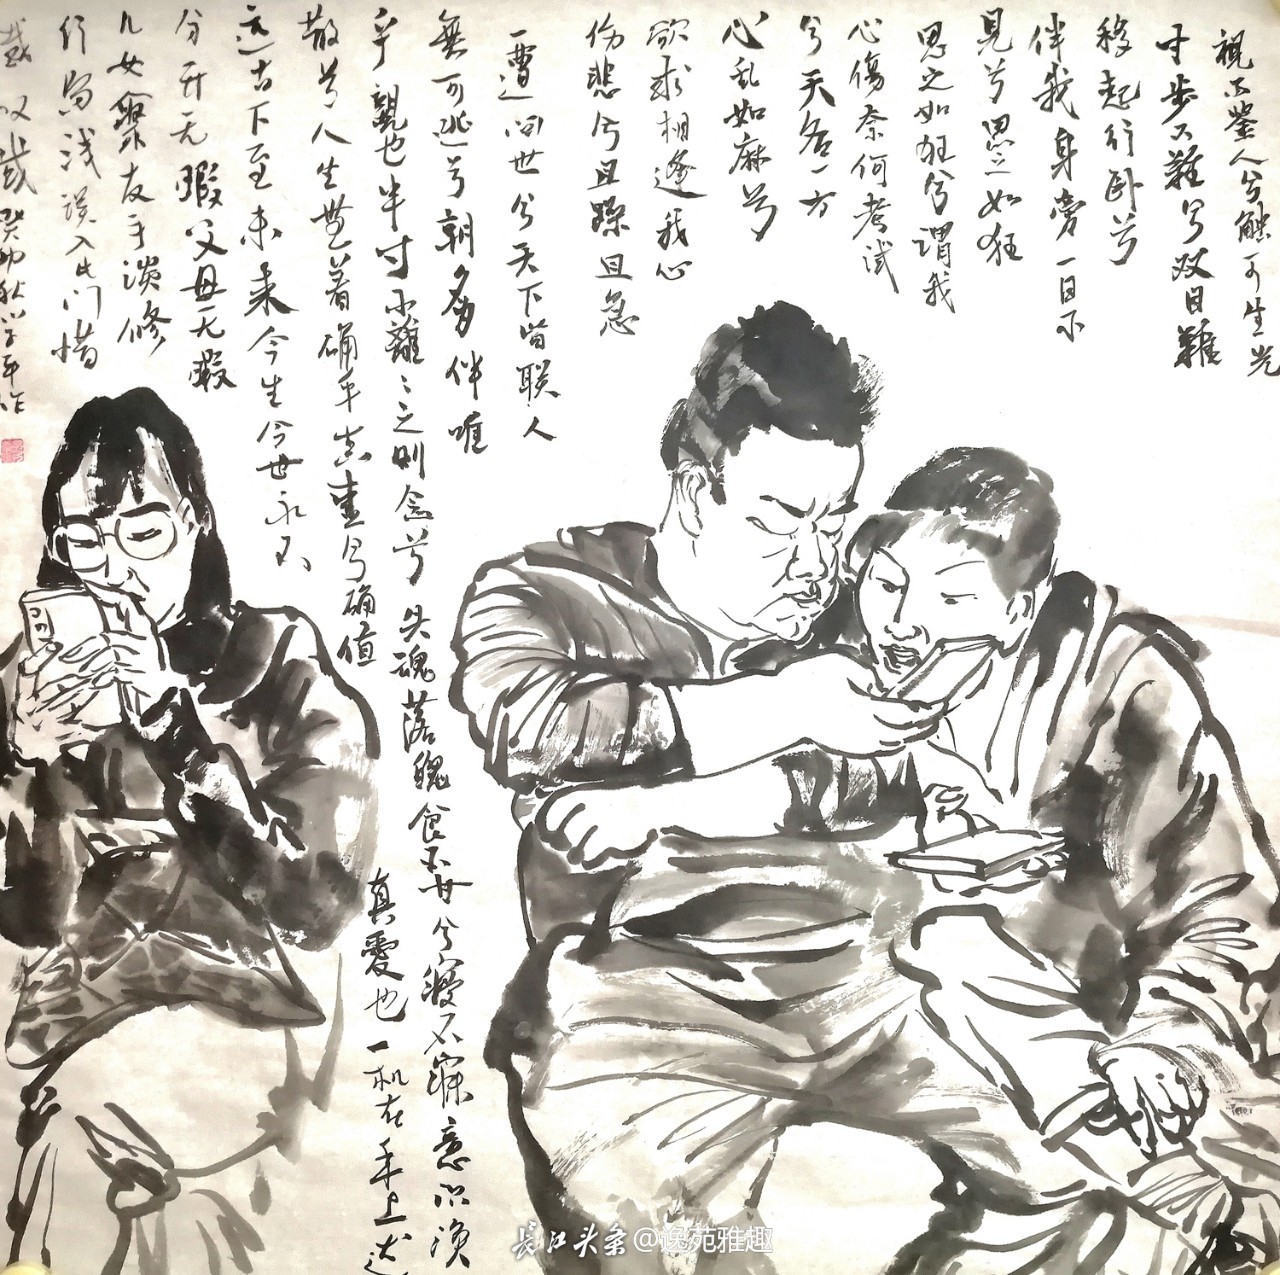 視不鉴人兮触可生光
寸步不離兮双目難
移起行卧兮
伴我身旁一日不
見兮思之如狂
思之如狂兮谓我
心傷奈何考试
兮天各一方
心乱如麻兮
欲求相逢我心
伤悲兮且躁且急
一遭问世兮天下皆联人
無可逃兮朝夕伴唯
乎親也半寸不離〻之则念兮失魂落魄食不甘兮寝不寐意识涣
散兮人生無着确乎真重兮确值
真爱也一机在手上达
远古下至未来今生今世永不
分开无暇父母无暇
儿女聚友手谈修
行当浅误入此门惜
哉 叹哉 癸卯秋学平作
長江头条@逸苑雅趣